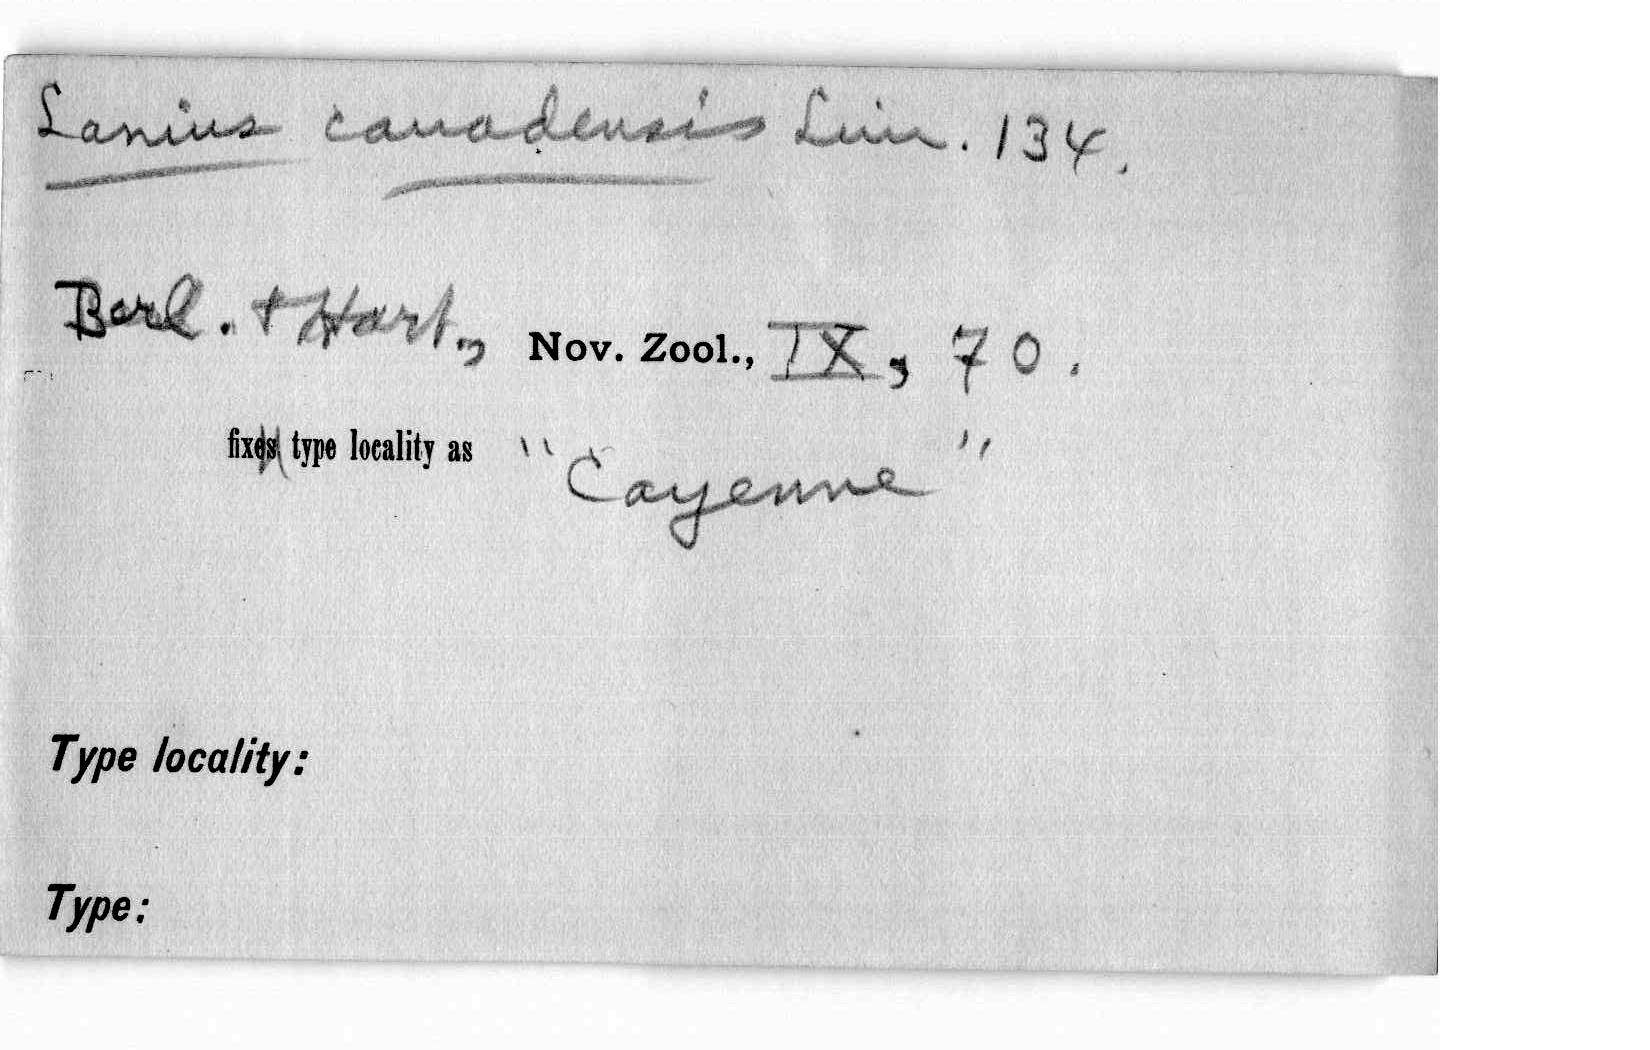 Lanius canadensis Linn. 134.
Berl. + Hart., Nov. Zool., IX, 70.
fix type locality as "Cayenne"
Type locality:
Type: